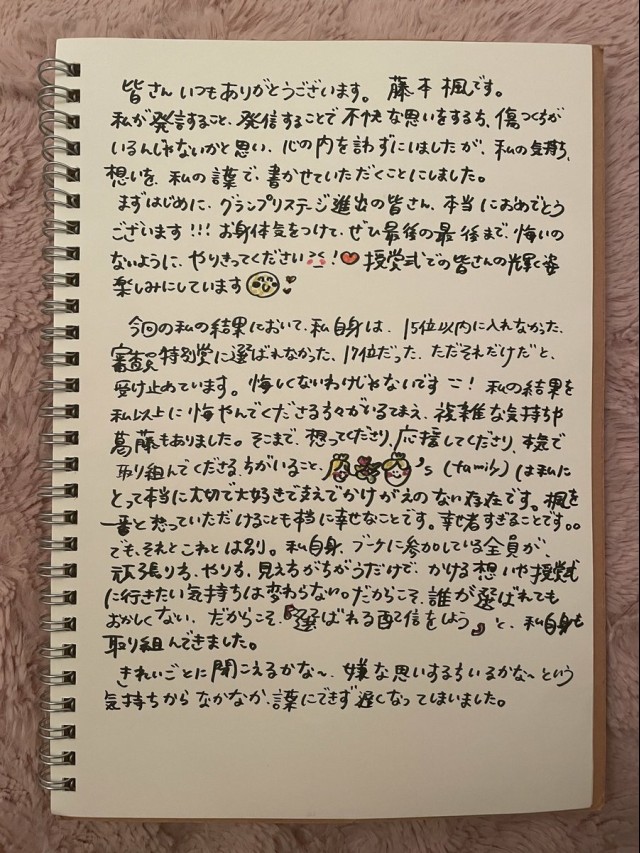 皆さん いつもありがとうございます。 藤本 楓です。
私が発言すること、発信することで不快な思いをする方、傷つく方が
いるんじゃないかと思い、心の内を言わずにいましたが、私の気持ち、
想いを、私の言葉で、書かせていただくことにしました。
まずはじめに、グランプリステージ進出の皆さん、本当におめでとう
ございます!!! お身体気をつけて、ぜひ最後の最後まで、悔いの
ないように、やりきってください! 授賞式での皆さんの輝く姿
楽しみにしています
今回の私の結果において、私自身は、15位以内に入れなかった、
審査員特別賞に選ばれなかった、17位だった、ただそれだけだと、
受け止めています。悔しくないわけじゃないです ! 私の結果を
私以上に悔やんでくださる方々がいるてまえ、複雑な気持ちや
葛藤もありました。そこまで、想ってくださり、応援してくださり、本気で
取り組んでくださる方がいること、 's (family) は私に
とって本当に大切で大好きでまえでかけがえのない存在です。楓を
一番と想っていただけることも本当に幸せなことです。幸せ者すぎることです。。
でも、それとこれとは別。私自身、ブーケに参加している全員が、
頑張り方、やり方、見え方がちがうだけで、かける想いや授賞式
に行きたい気持ちは変わらない。だからこそ、誰が選ばれても
おかしくない、だからこそ、『選ばれる配信をしよう』と、私自身も
取り組んできました。
きれいごとに聞こえるかな〜、嫌な思いする方いるかな〜という
気持ちから なかなか、言葉にできず遅くなってしまいました。